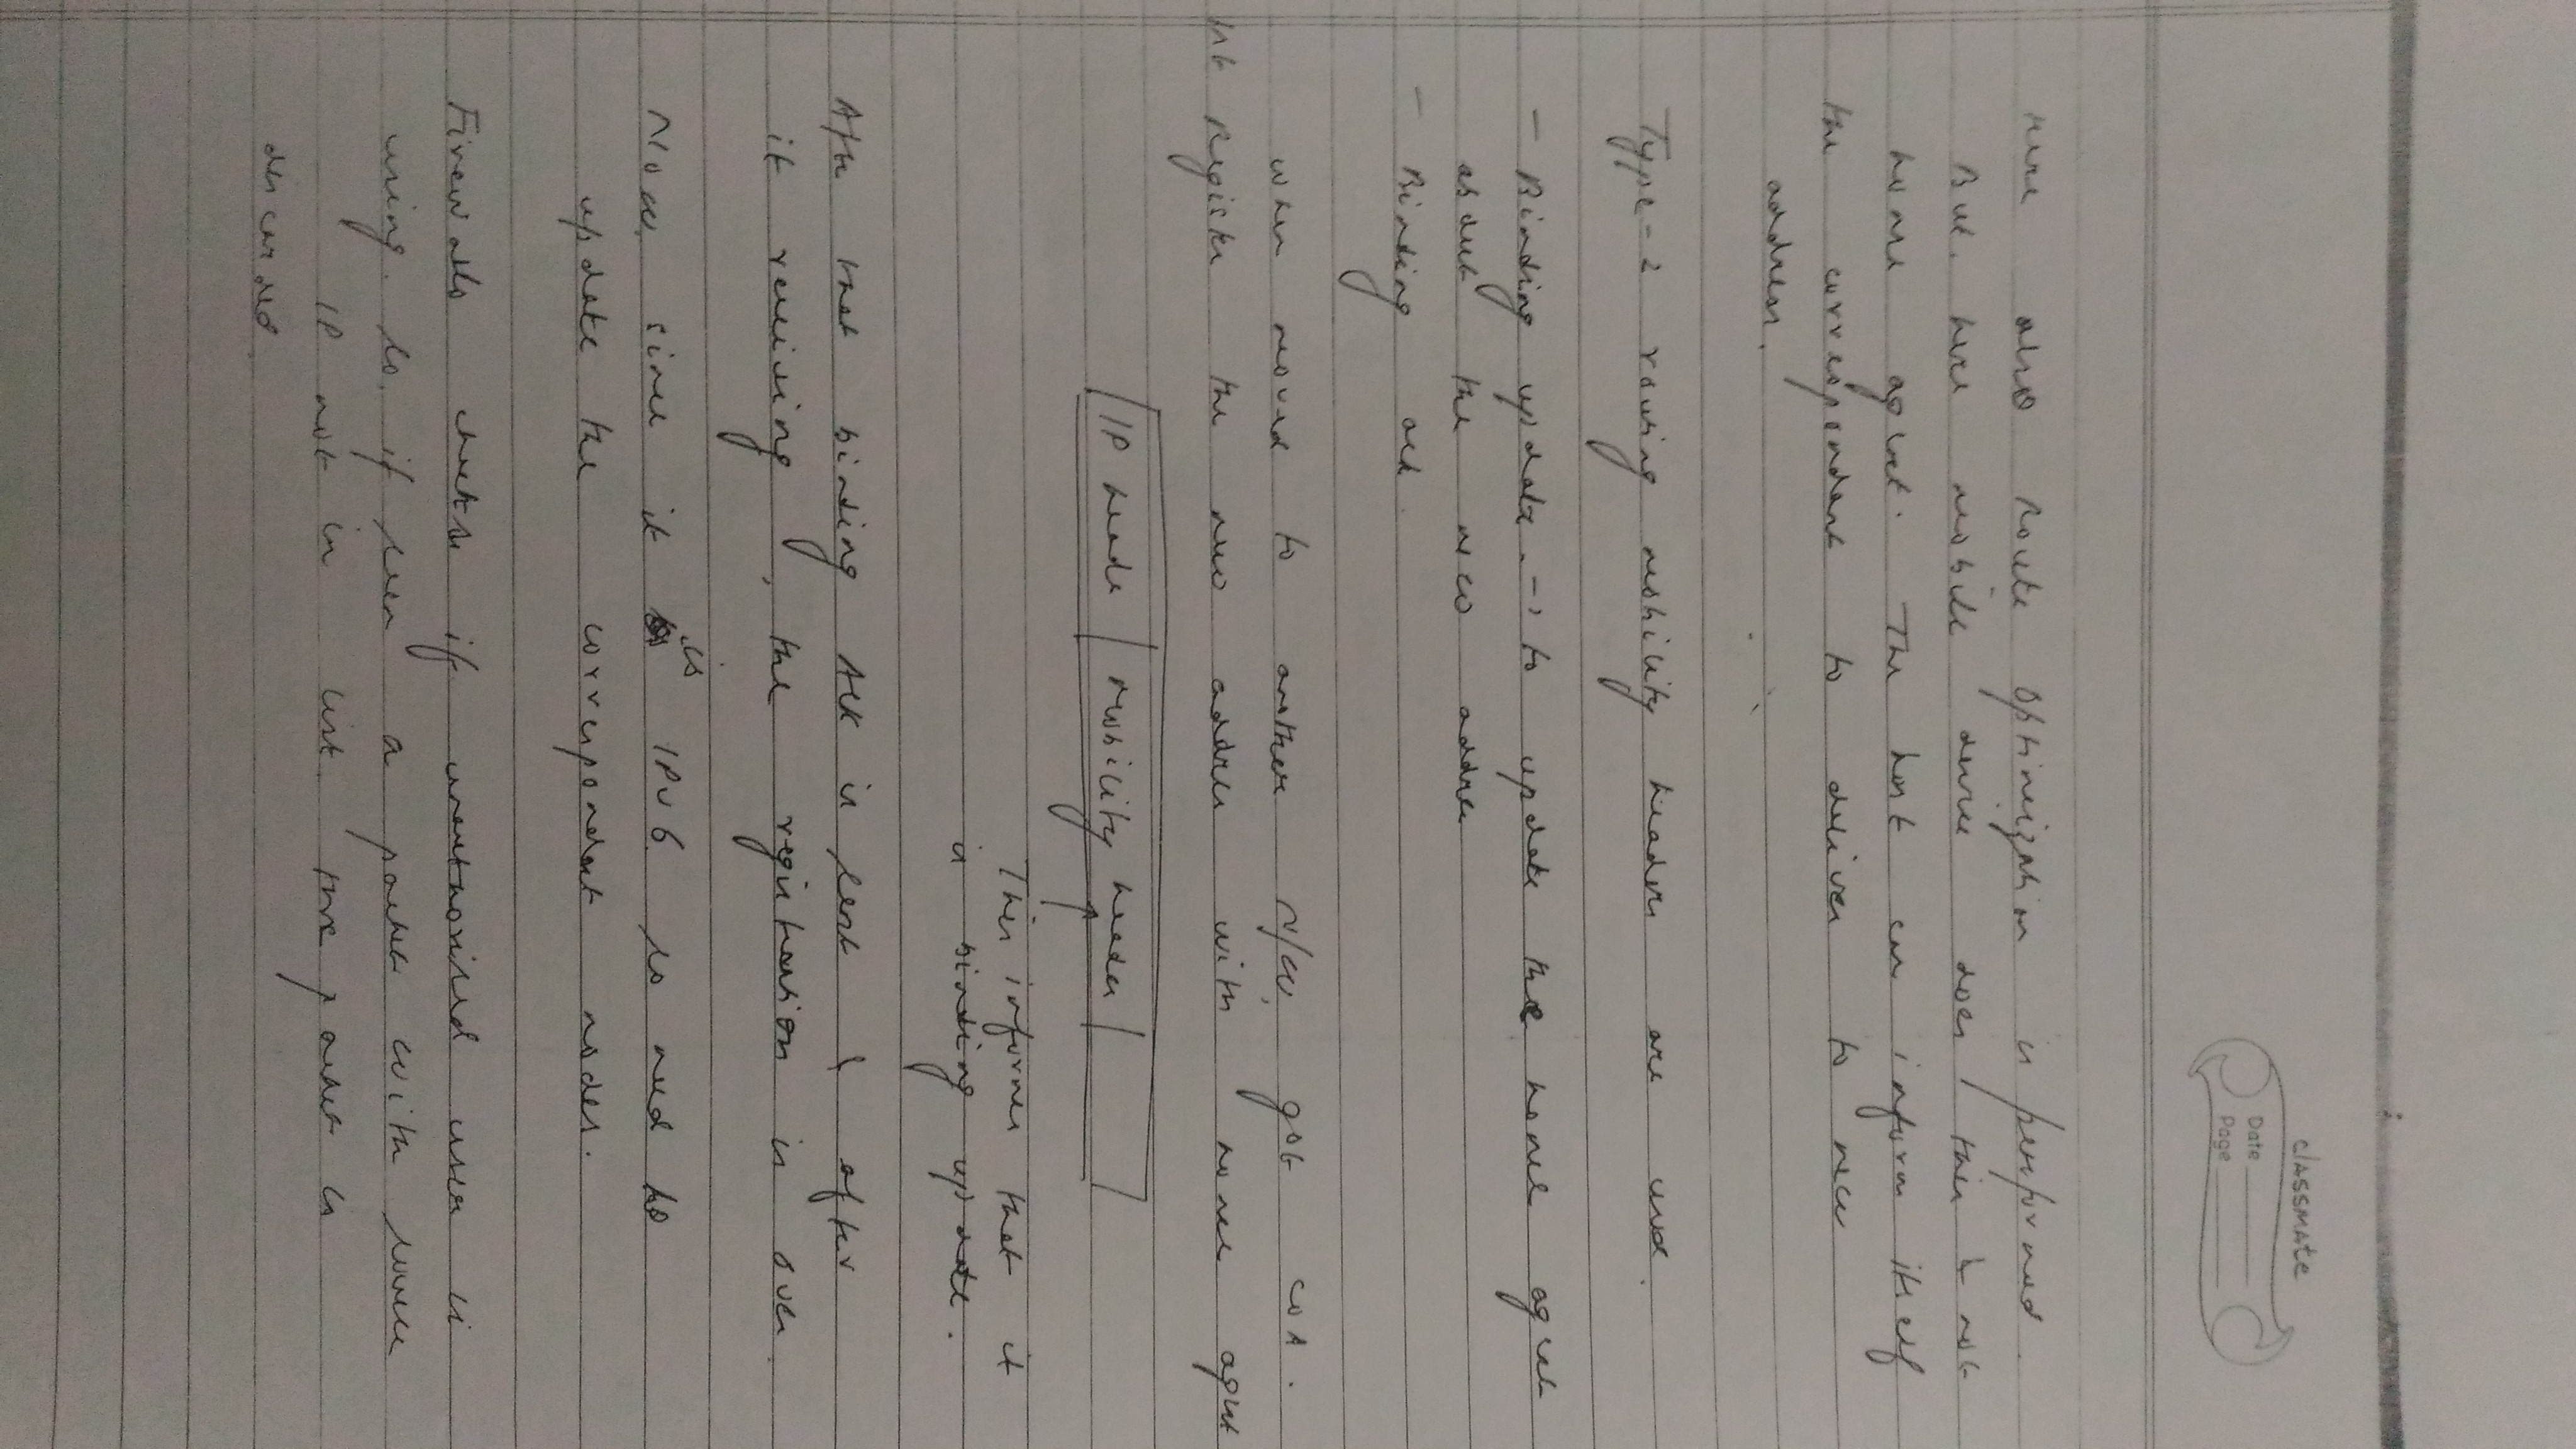 classmate
Date
Page
Here also Route Optimization is performed.
But. here mobile device does this & not
home agent. The host can inform itself
the correspondent to deliver to new
address.
Type-2 routing mobility headers are used.
- Binding update. → to update the home agent
about the new addre
- Binding ack.
When moved to another N/W, got COA.
1st Register the new address with home agent
IP heade | Mobility header |
This informes that it
is binding update.
After that binding ACK is sent & after
it receiving, the registration is over.
Now, since it is IPv6 so need to
update the correspondent nodes.
Firewalls checks if unauthorised user is
using. So, if seen a packet with source
IP not in list. the packet is
discarded.